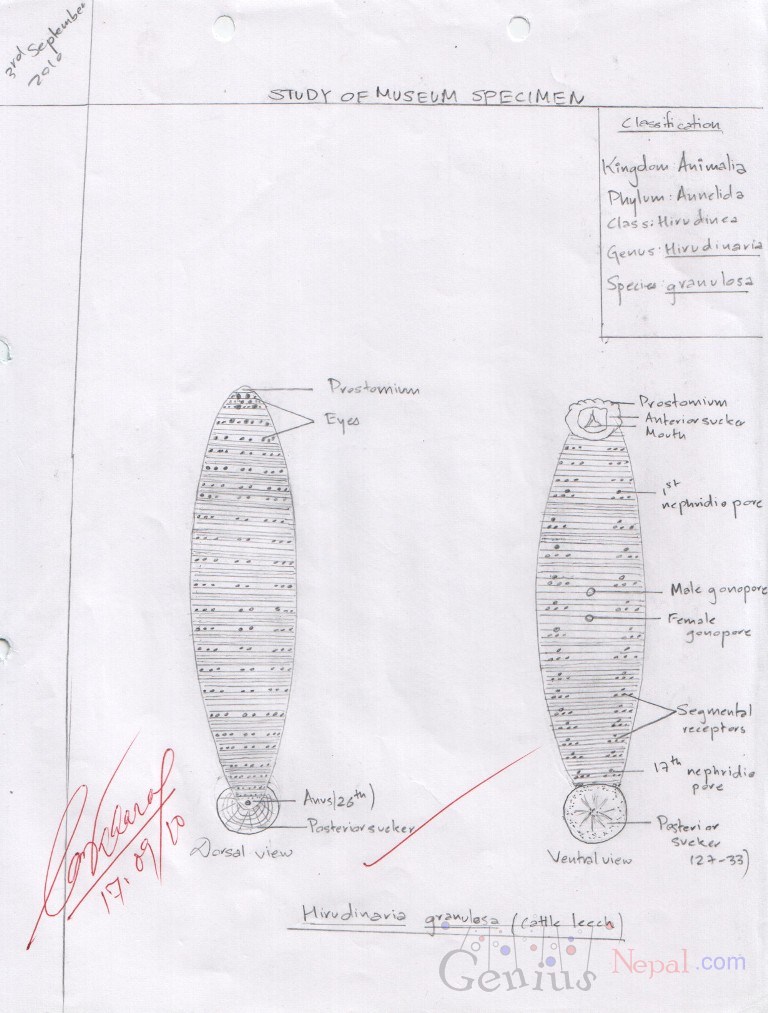 3rd September
2010
STUDY OF MUSEUM SPECIMEN
Classification
Kingdom Animalia
Phylum: Annelida
Class: Hirudinea
Genus: Hirudinaria
Species: granulosa
Prostomium
Eyes
Anus(26th)
Posterior sucker
Dorsal view
Prostomium
Anterior sucker
Mouth
1st
nephridiopore
Male gonopore
Female
gonopore
Segmental
receptors
17th nephridio
pore
Posterior
sucker
(27-33)
Ventral view
17.09/10
Hirudinaria granulosa (cattle leech)
Genius Nepal.com